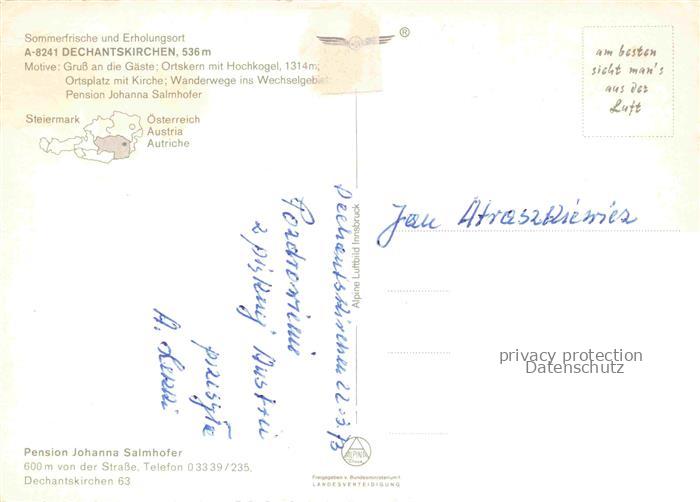 Sommerfrische und Erholungsort
A-8241 DECHANTSKIRCHEN, 536 m
Motive: Gruß an die Gäste; Ortskern mit Hochkogel, 1314 m;
Ortsplatz mit Kirche; Wanderwege ins Wechselgebiet
Pension Johanna Salmhofer
Steiermark
Österreich
Austria
Autriche
®
am besten
sieht man's
aus der
Luft
Dechantskirchen 22.3.73
Pozdrowienie
z pięknej Austrii
przesyła
A.
Jan Atraszkiewicz
Alpine Luftbild Innsbruck
privacy protection
Datenschutz
Pension Johanna Salmhofer
600 m von der Straße, Telefon 0 33 39 / 235,
Dechantskirchen 63
ALPINE
Freigegeben v. Bundesministerium f.
LANDESVERTEIDIGUNG